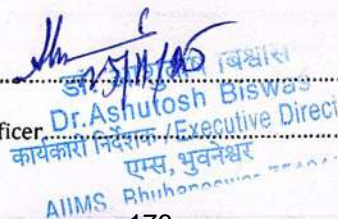 डॉ. आशुतोष बिश्वास
ficer Dr. Ashutosh Biswas
कार्यकारी निर्देशक / Executive Direc
एम्स, भुवनेश्वर
AIIMS, Bhubaneswar